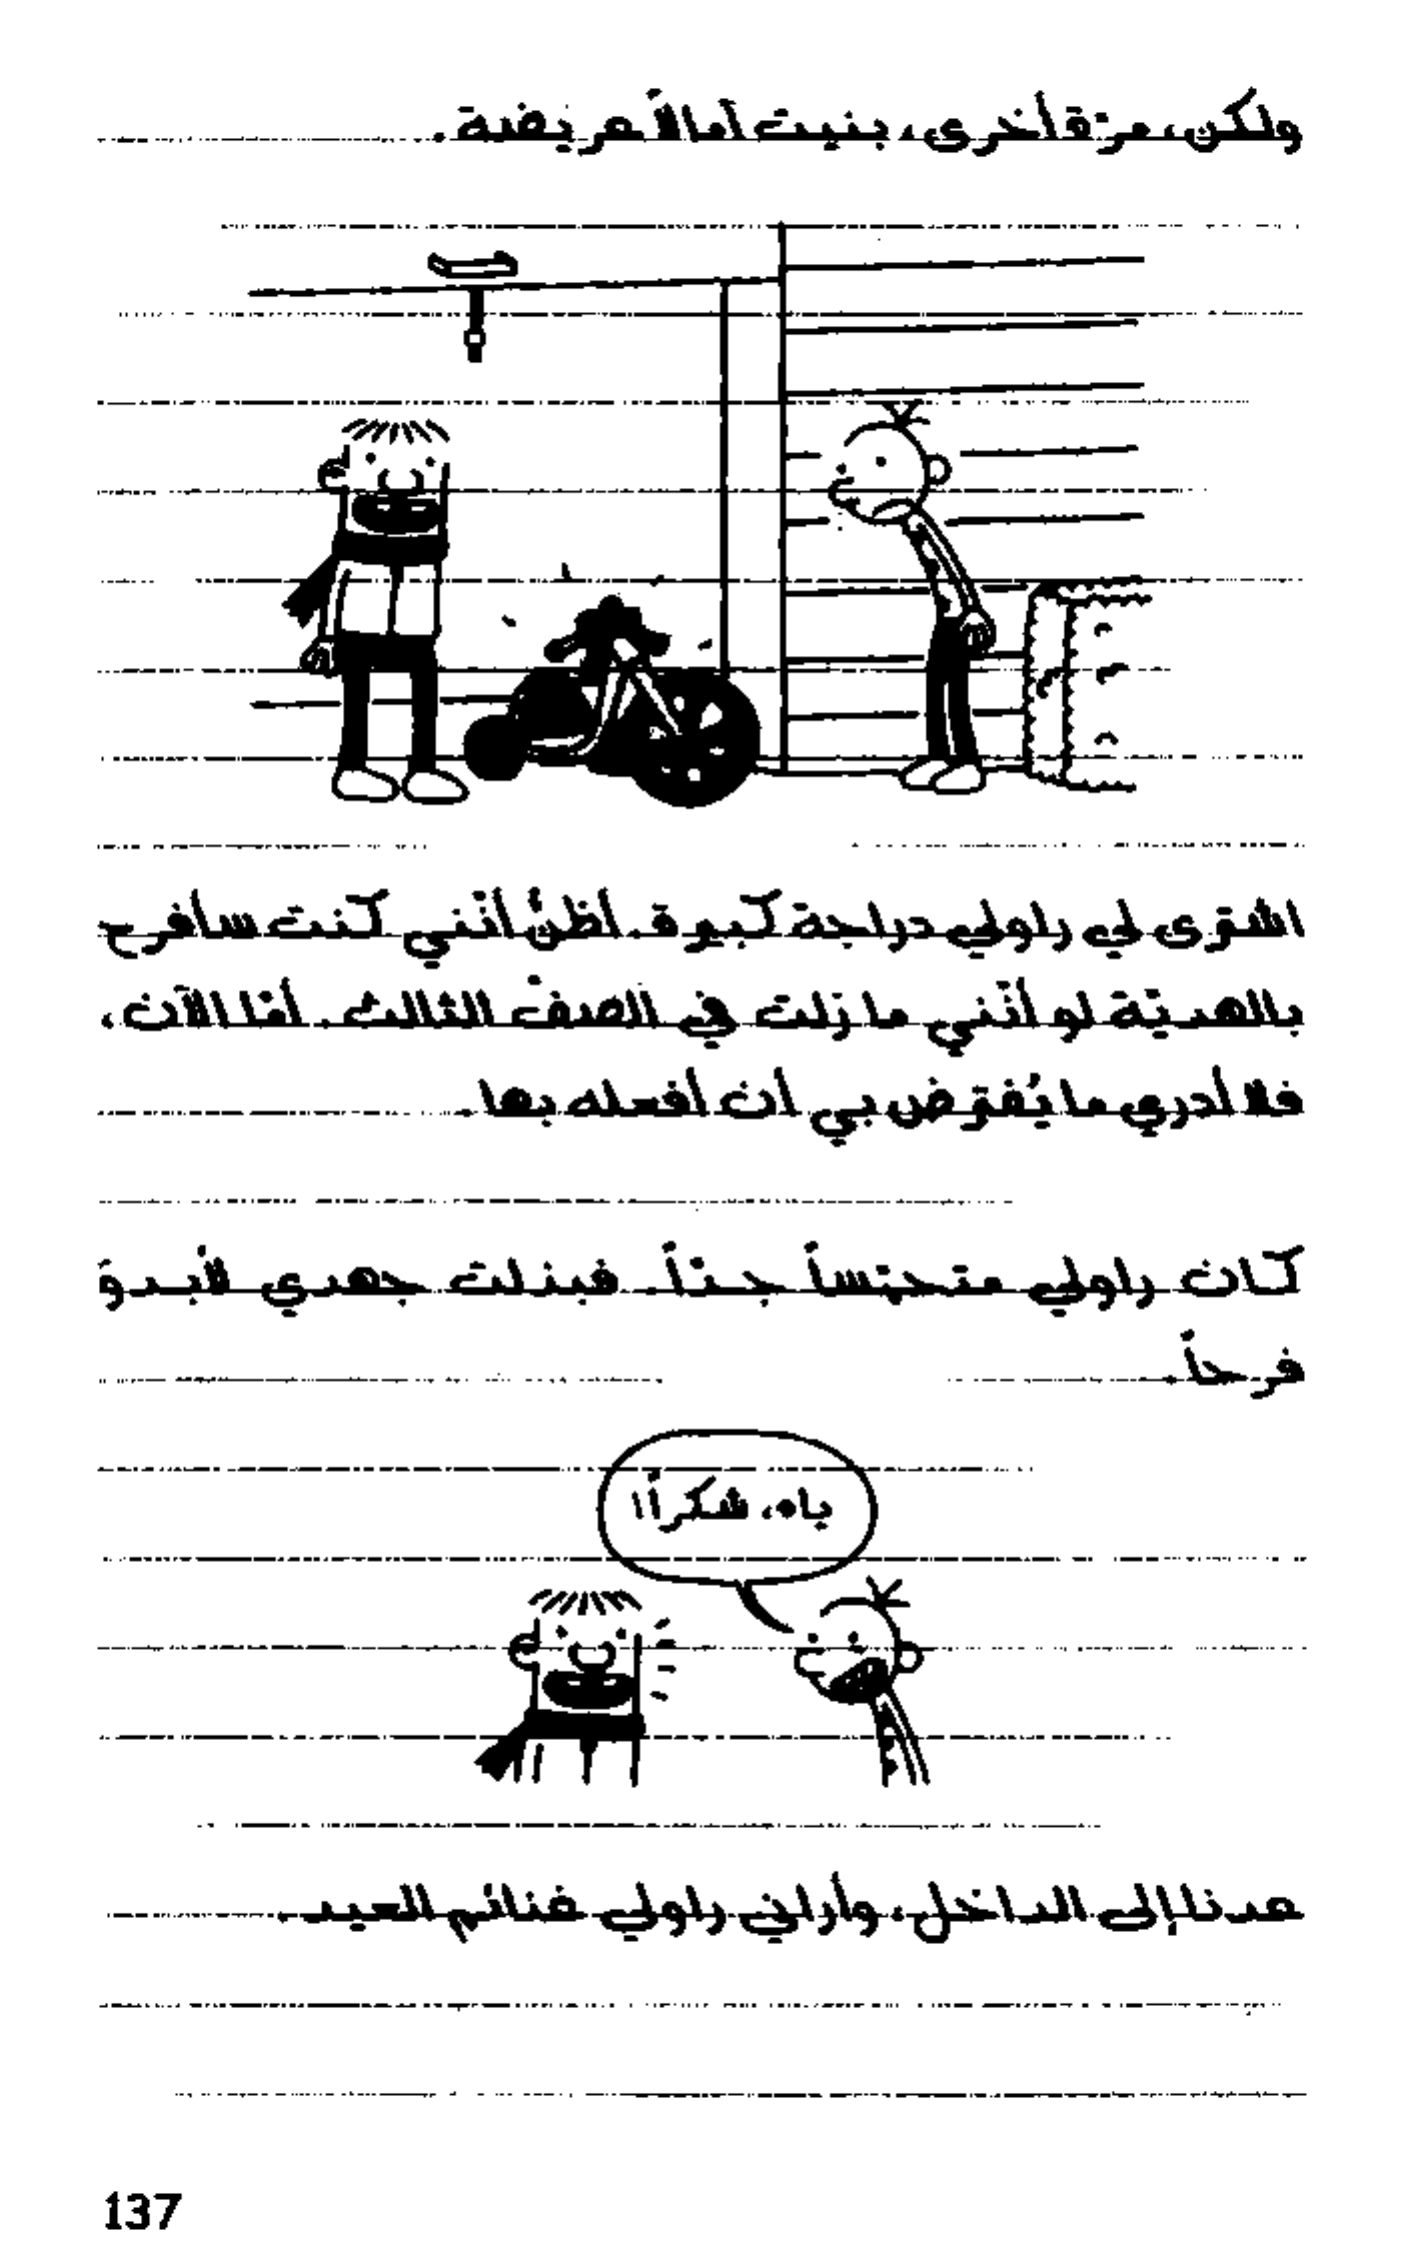 ولكن، مرّة أخرى، بنيت آمالاً عريضة.
اشترى لي راولي دراجة كبيرة. أظنُّ أنّني كنت سأفرح
بالهديّة لو أنّني ما زلت في الصفّ الثالث. أمّا الآن،
فلا أدري ما يُفترض بي أن أفعله بها.
كان راولي متحمّساً جدّاً. فبذلت جهدي لأبدوَ
فرحاً.
ياه، شكراً!!
عدنا إلى الداخل، وأراني راولي غنائم العيد.
137